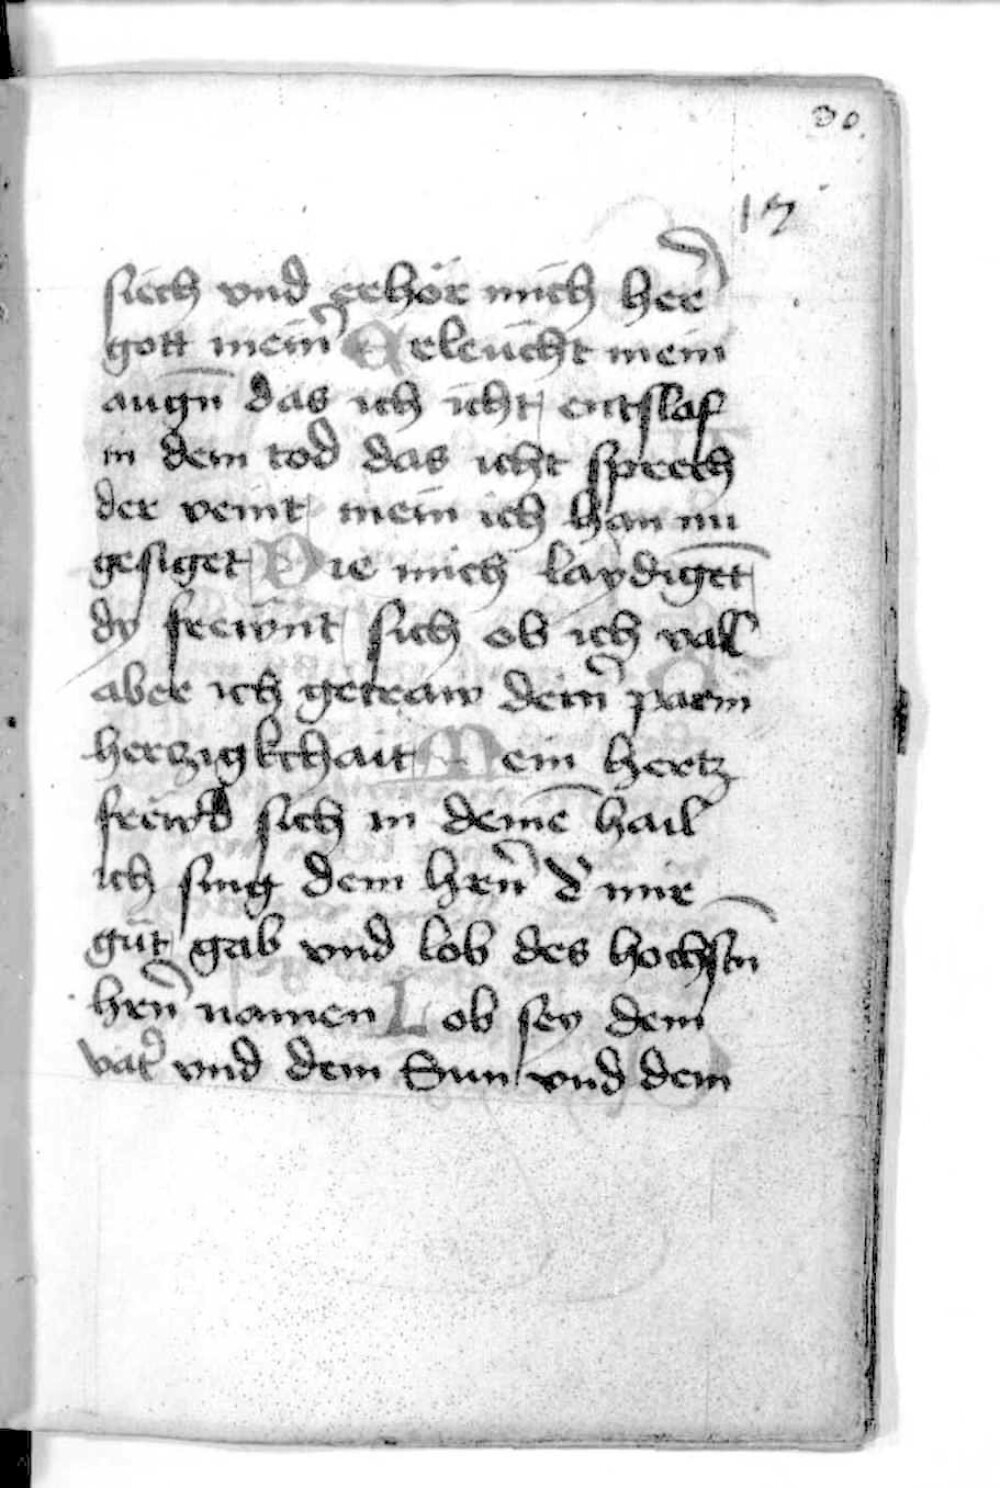 30.
17
siech vnd erhör mich her̄
gott mein̾ Erleücht mein
augn̄ das ich icht entslaf
in dem tod das icht sprech
der veint mein ich han im
gesiget Die mich laydiget̄
dy frewnt sich ob ich vall
aber ich getraw dein̾ parm
herczigkchait Mein hertz
frewd sich in deinē hail
ich sing dem hrn̄ d̾ mir
güt gab vnd lob des hochstn̄
hrn̄ namen Lob sey dem
vat̾ vnd dem Sun vnd dem